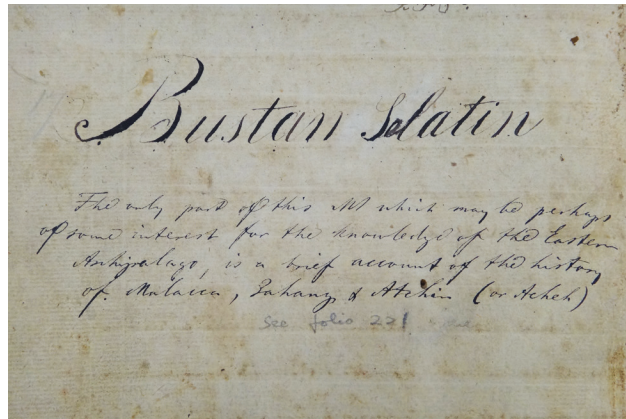 Bustan Selatin
The only part of this MS which may be perhaps
of some interest for the knowledge of the Eastern
Archipelago, is a brief account of the history
of Malacca, Pahang & Atchin (or Acheh)
see folio 221